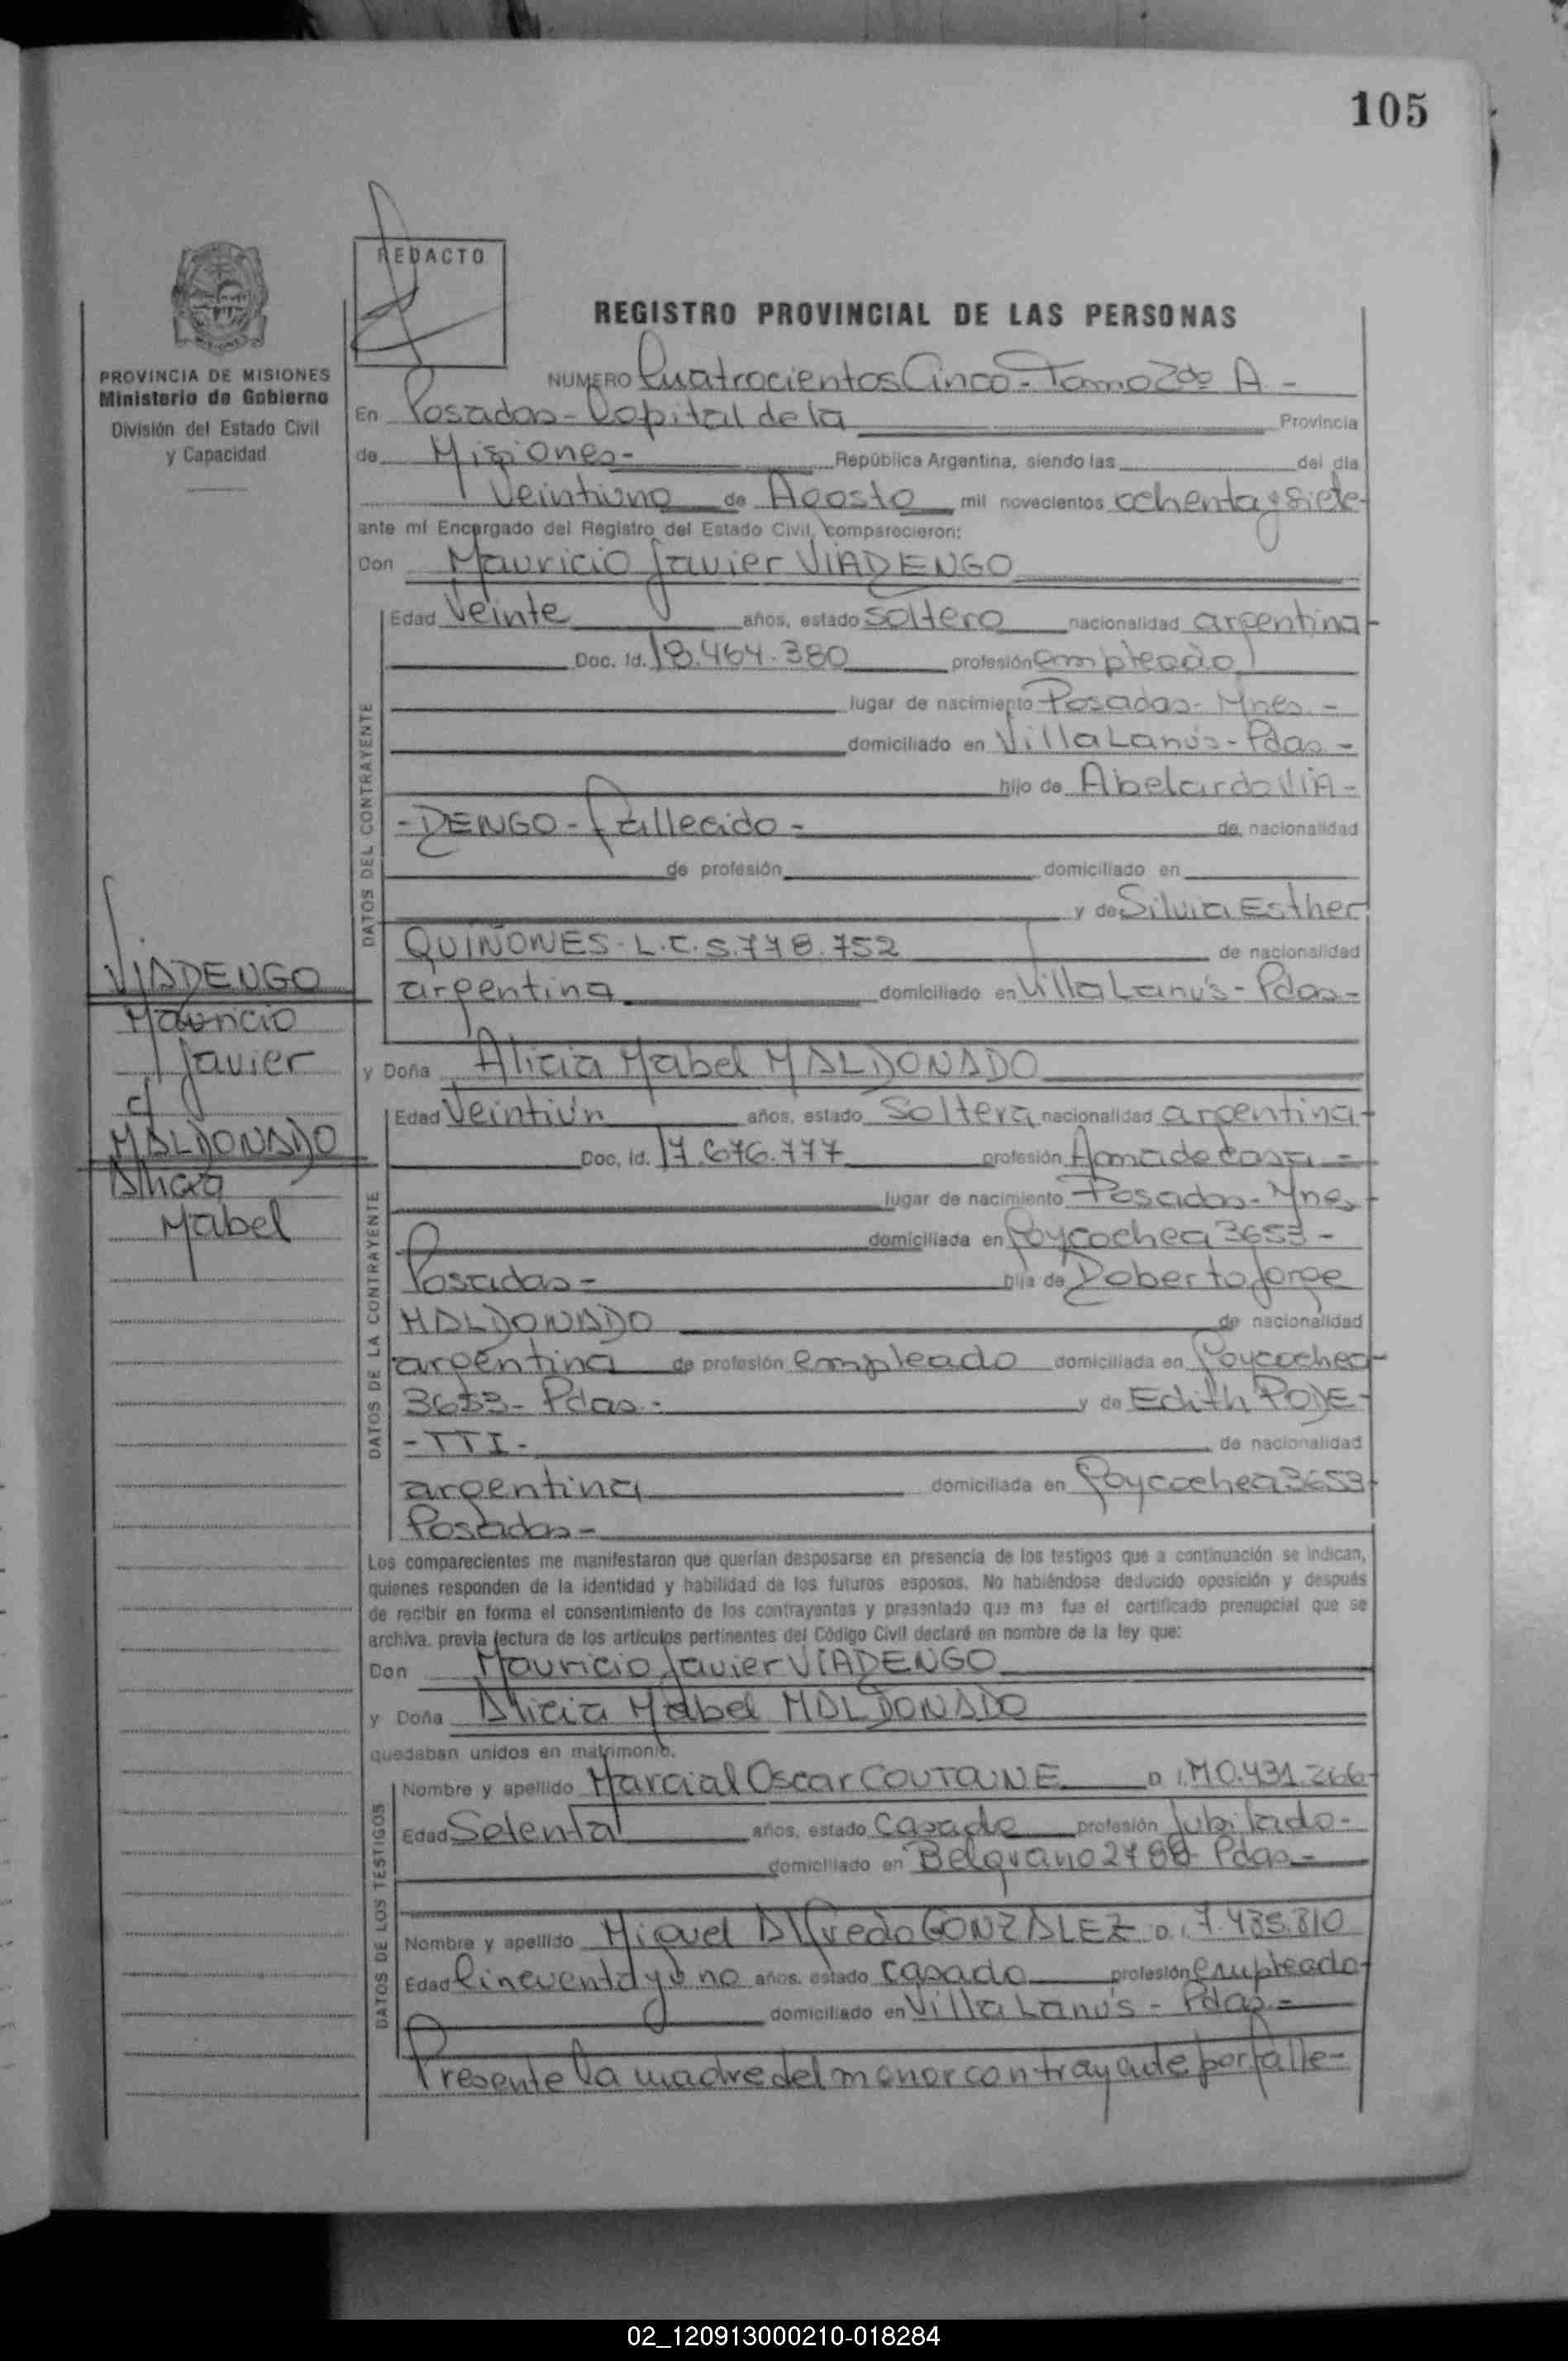 105
REDACTO
PROVINCIA DE MISIONES
Ministerio de Gobierno
División del Estado Civil
y Capacidad
REGISTRO PROVINCIAL DE LAS PERSONAS
NUMERO Cuatrocientos Cinco - Tomo 2do A -
En Posadas - Capital de la Provincia
de Misiones - República Argentina, siendo las del día
Veintiuno de Agosto mil novecientos ochenta y siete -
ante mí Encargado del Registro del Estado Civil, comparecieron:
Don Mauricio Javier VIADENGO
DATOS DEL CONTRAYENTE
Edad Veinte años, estado soltero nacionalidad argentina -
Doc. Id. 18.464.380 profesión empleado
lugar de nacimiento Posadas - Mnes. -
domiciliado en Villa Lanús - Pdas -
hijo de Abelardo VIA -
- DENGO - fallecido - de nacionalidad
de profesión domiciliado en
y de Silvia Esther
QUIÑONES - L.C. 5.778.752 de nacionalidad
argentina domiciliado en Villa Lanús - Pdas -
VIADENGO
Mauricio
Javier
c/
MALDONADO
Alicia
Mabel
y Doña Alicia Mabel MALDONADO
DATOS DE LA CONTRAYENTE
Edad Veintiún años, estado Soltera nacionalidad argentina -
Doc. Id. 17.676.777 profesión Ama de casa -
lugar de nacimiento Posadas - Mnes -
domiciliada en Goycochea 3653 -
Posadas - hija de Roberto Jorge
MALDONADO de nacionalidad
argentina de profesión empleado domiciliada en Goycochea -
3653 - Pdas. - y de Edith PODE -
- TTI - de nacionalidad
argentina domiciliada en Goycochea 3653 -
Posadas -
Los comparecientes me manifestaron que querían desposarse en presencia de los testigos que a continuación se indican,
quienes responden de la identidad y habilidad de los futuros esposos. No habiéndose deducido oposición y después
de recibir en forma el consentimiento de los contrayentes y presentado que me fue el certificado prenupcial que se
archiva. previa lectura de los artículos pertinentes del Código Civil declaré en nombre de la ley que:
Don Mauricio Javier VIADENGO
y Doña Alicia Mabel MALDONADO
quedaban unidos en matrimonio.
DATOS DE LOS TESTIGOS
Nombre y apellido Marcial Oscar COUTOUNE D.I. M0.431.266 -
Edad Setenta años, estado Casado profesión Jubilado -
domiciliado en Belgrano 2788 Pdas -
Nombre y apellido Miguel Alfredo GONZALEZ D.I. 7.485.810
Edad Cincuenta y uno años, estado casado profesión empleado -
domiciliado en Villa Lanús - Pdas. -
Presente la madre del menor contrayente por falle -
02_120913000210-018284